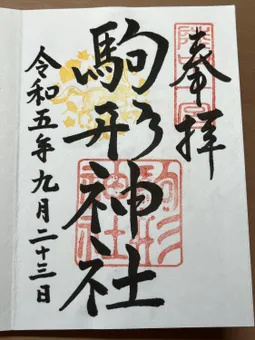 奉拝
駒形神社
令和五年九月二十三日
駒形
神社